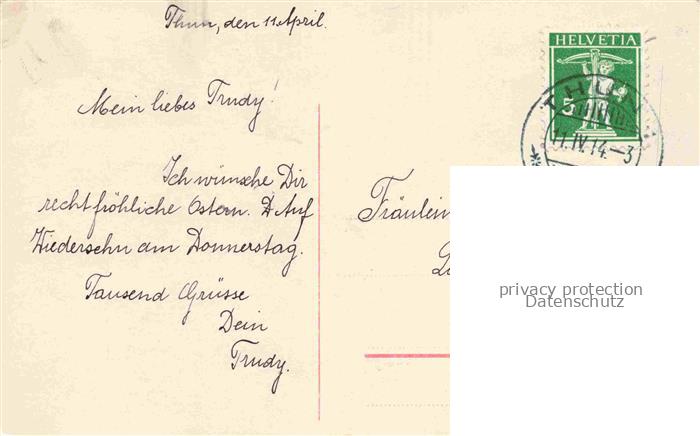 Thun, den 11 April.
Mein liebes Trudy!
Ich wünsche Dir
recht fröhliche Ostern. Auf
Wiedersehn am Donnerstag.
Tausend Grüsse
Dein
Trudy.
HELVETIA
5
THUN
11.IV.14.–3
Fräulein
privacy protection
Datenschutz